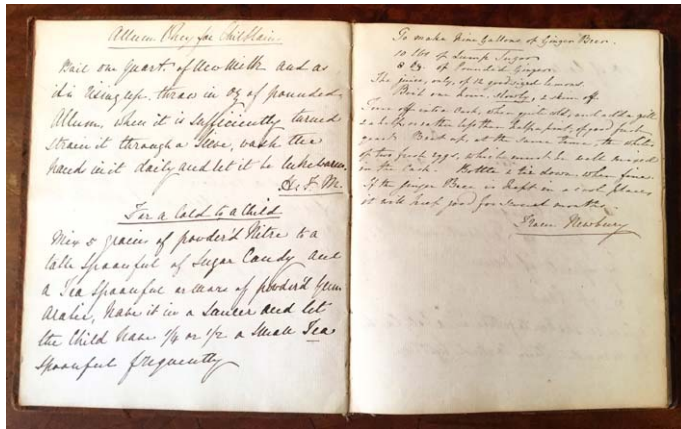 Allum Whey for Chilblains
Boil one Quart of New Milk and as
it is rising up, throw in oz of pounded
Allum, when it is sufficiently turned
strain it through a Sieve, wash the
hands in it daily and let it be lukewarm.
H. F. M.
For a Cold to a Child
Mix 5 grains of powder'd Nitre to a
table spoonful of Sugar Candy and
a Tea spoonful or more of powder'd Gum
Arabic, have it in a Saucer and let
the Child have 1/4 or 1/2 a small Tea
spoonful frequently
To make Nine Gallons of Ginger Beer.
10 lbs of Lump Sugar
8 oz of Pounded Ginger
The juice, only, of good sized lemons.
Boil one hour, slowly, & skim off.
Turn off into a Cask, when quite cold, and add a gill
rather less than half a pint, of good fresh
yeast. Beat up at the same time, the whites
of two fresh Eggs, which must be well mixed
in the Cask. Bottle & tie down when fine.
If the Ginger Beer is kept in a cool place
it will keep good for several months.
From Newbury